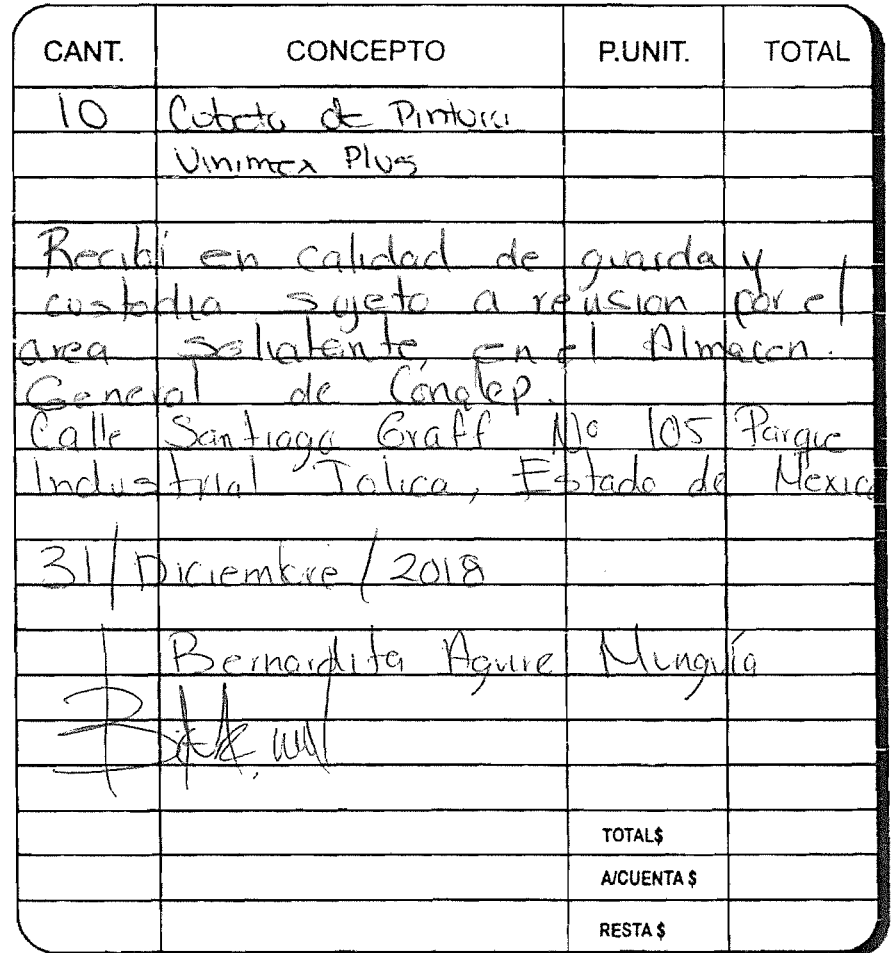 CANT. CONCEPTO P.UNIT. TOTAL
10 Cubeta de Pintura
Vinimex Plus
Recibi en calidad de guarda y
custodia sujeto a revision por el
area solicitante, en el Almacen.
General de Conalep.
Calle Santiago Graff No 105 Parque
Industrial Toluca, Estado de Mexico
31/Diciembre/2018
Bernardita Aguirre Munguía
TOTAL$
A/CUENTA $
RESTA $